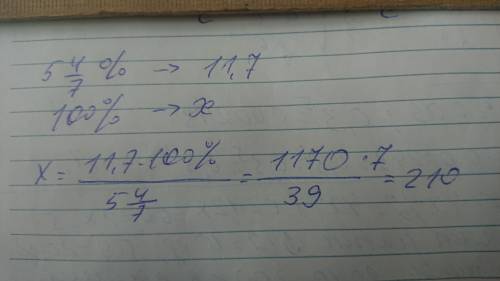 5 4/7 % → 11,7
100% → x
x = 11,7·100% / 5 4/7 = 1170·7 / 39 = 210